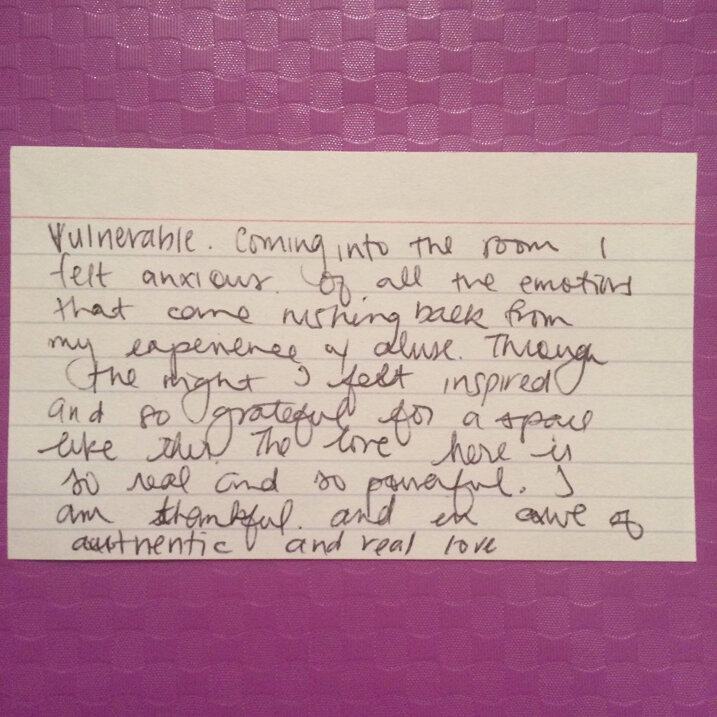 Vulnerable. Coming into the room I
felt anxious. Of all the emotions
that came rushing back from
my experience of abuse. Through
the night I felt inspired
and so grateful for a space
like this. The love here is
so real and so powerful. I
am thankful. and in awe of
authentic and real love